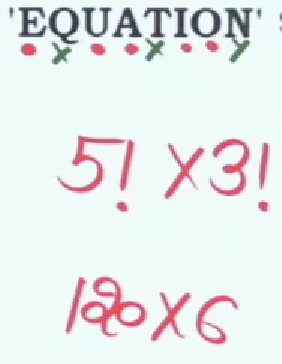 'EQUATION'
5! ×3!
120×6